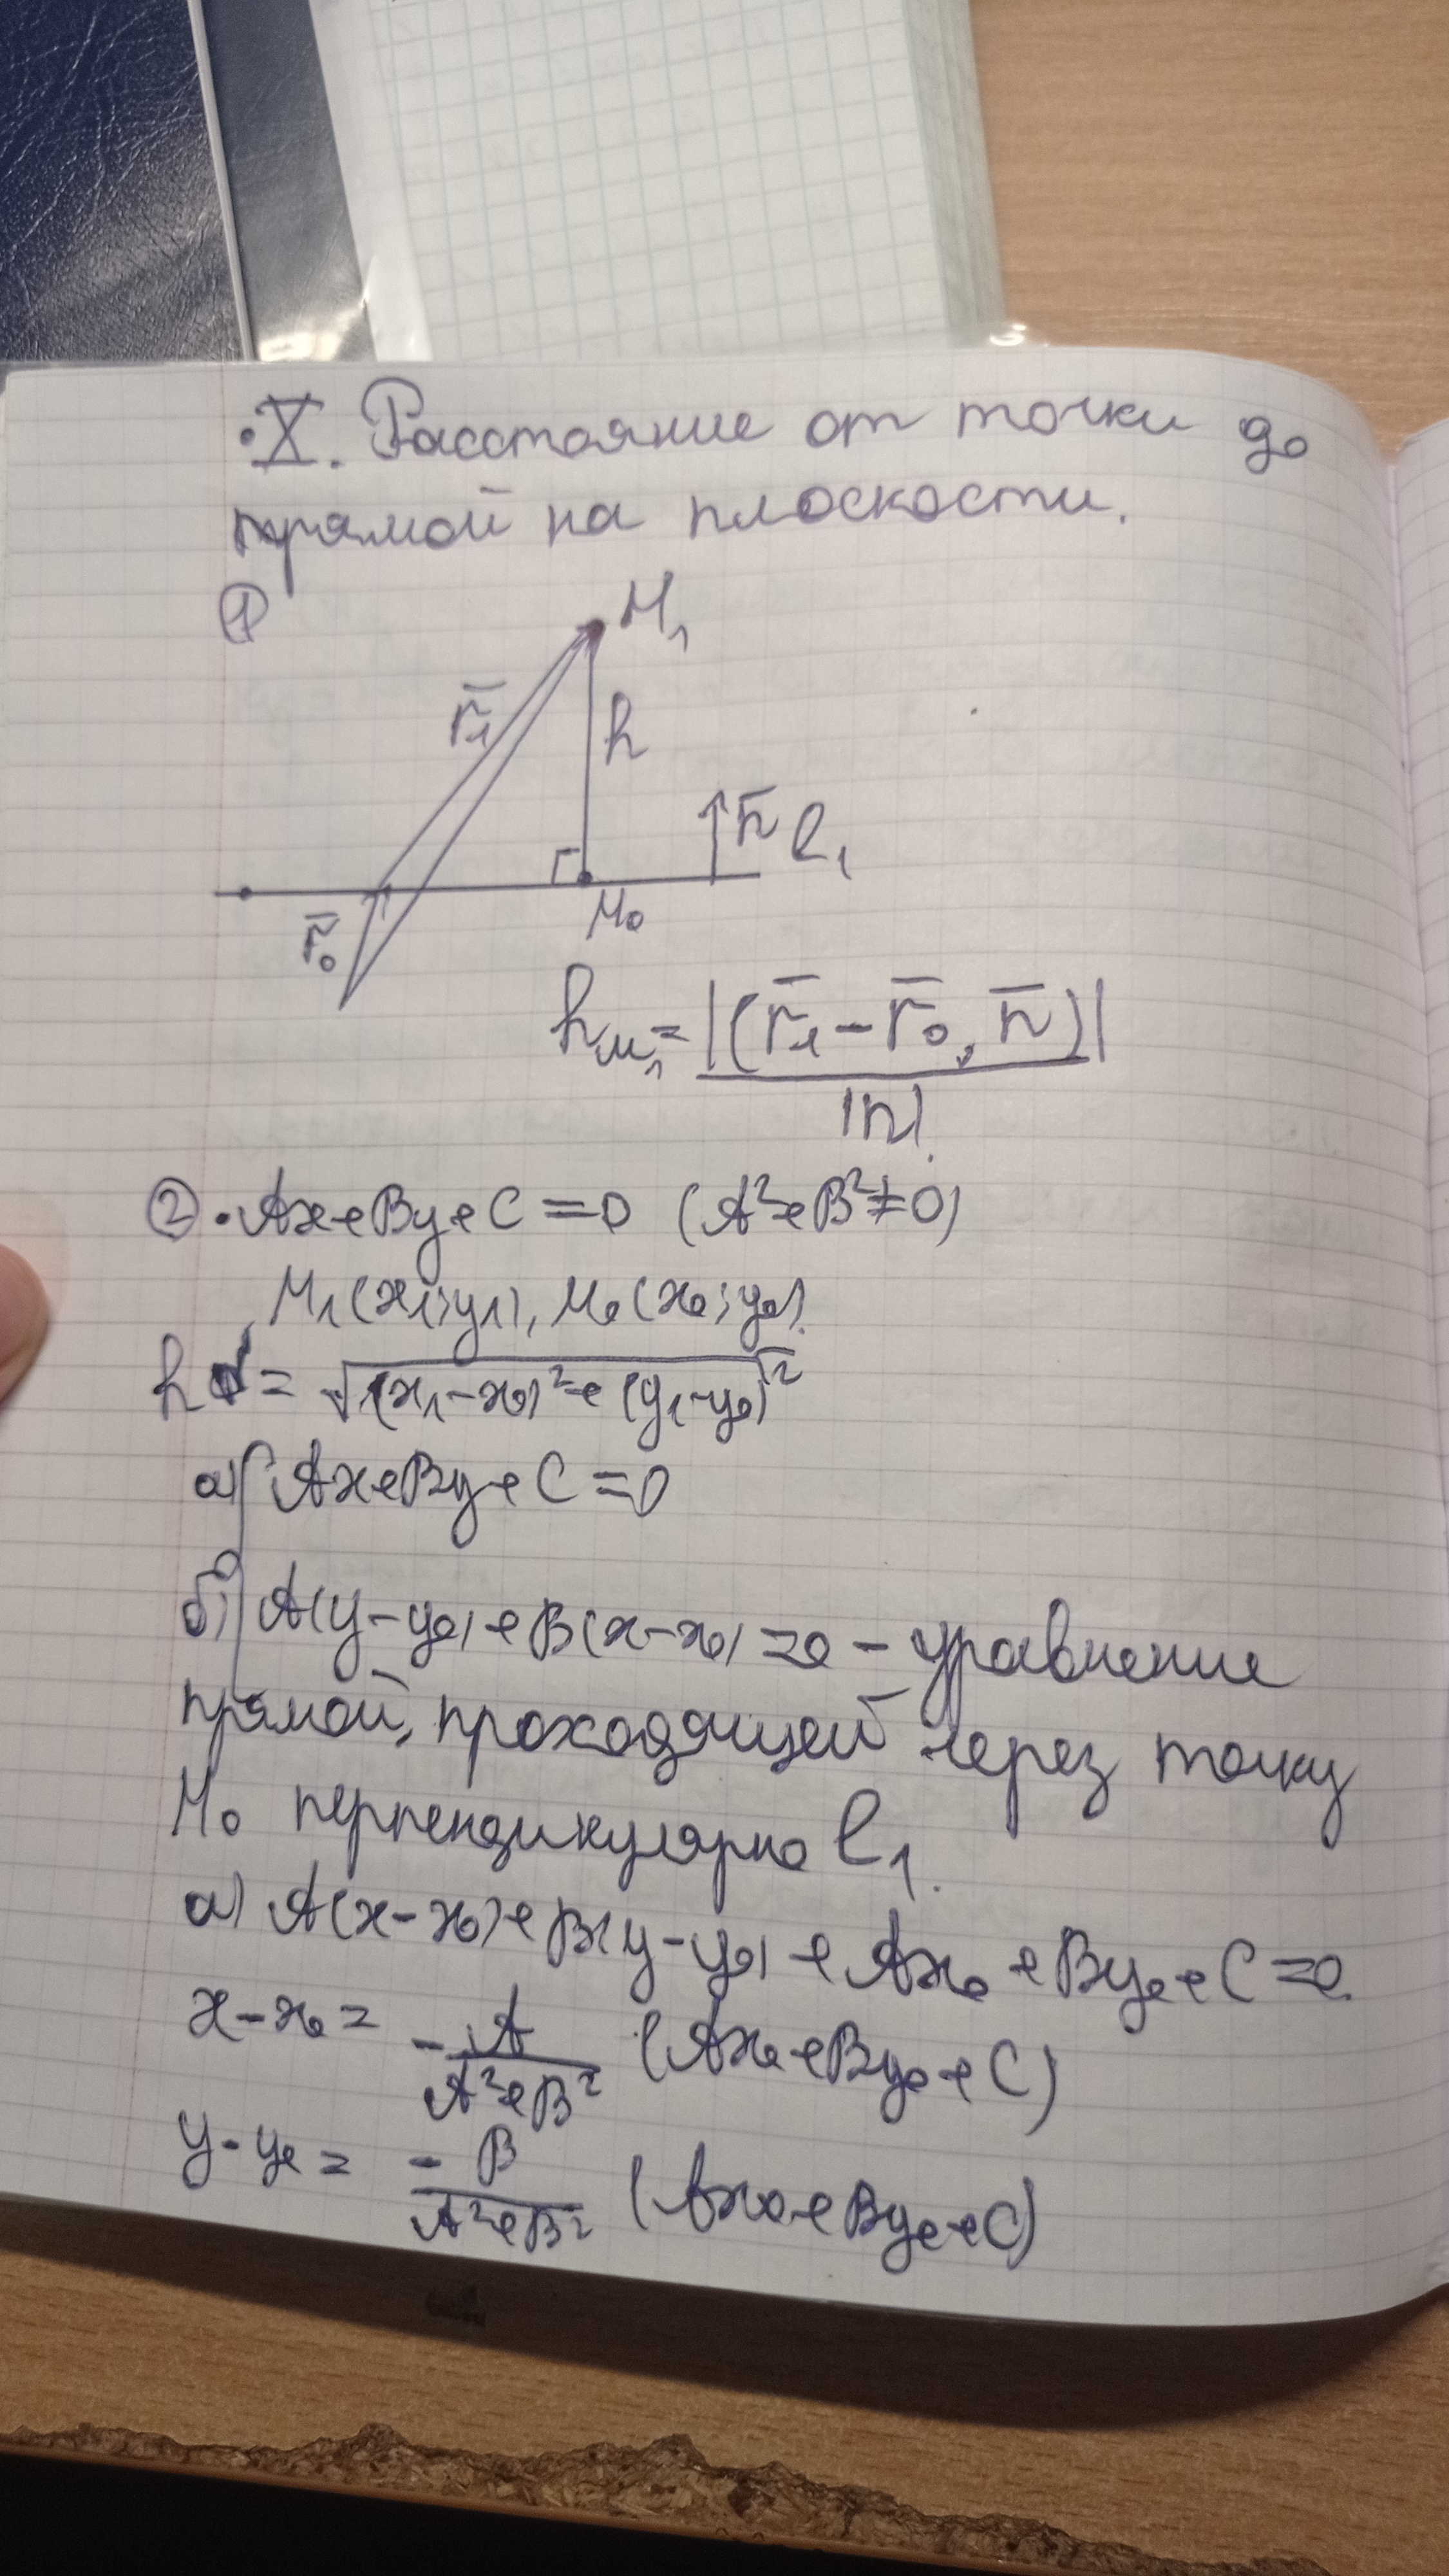 ·X. Расстояние от точки до
прямой на плоскости.
① M₁
r̄₁ h
n̄ l₁
r̄₀ M₀
h_M₁ = |(r̄₁ - r̄₀, n̄)| / |n|.
② · Ax+By+C=0 (A²+B²≠0)
M₁(x₁;y₁), M₀(x₀;y₀).
h = √((x₁-x₀)²+(y₁-y₀)²
а) Ax+By+C=0
б) A(y-y₀)+B(x-x₀)=0 - уравнение
прямой, проходящей через точку
M₀ перпендикулярно l₁.
а) A(x-x₀)+B(y-y₀)+Ax₀+By₀+C=0.
x-x₀ = -A/(A²+B²) (Ax₀+By₀+C)
y-y₀ = -B/(A²+B²) (Ax₀+By₀+C)